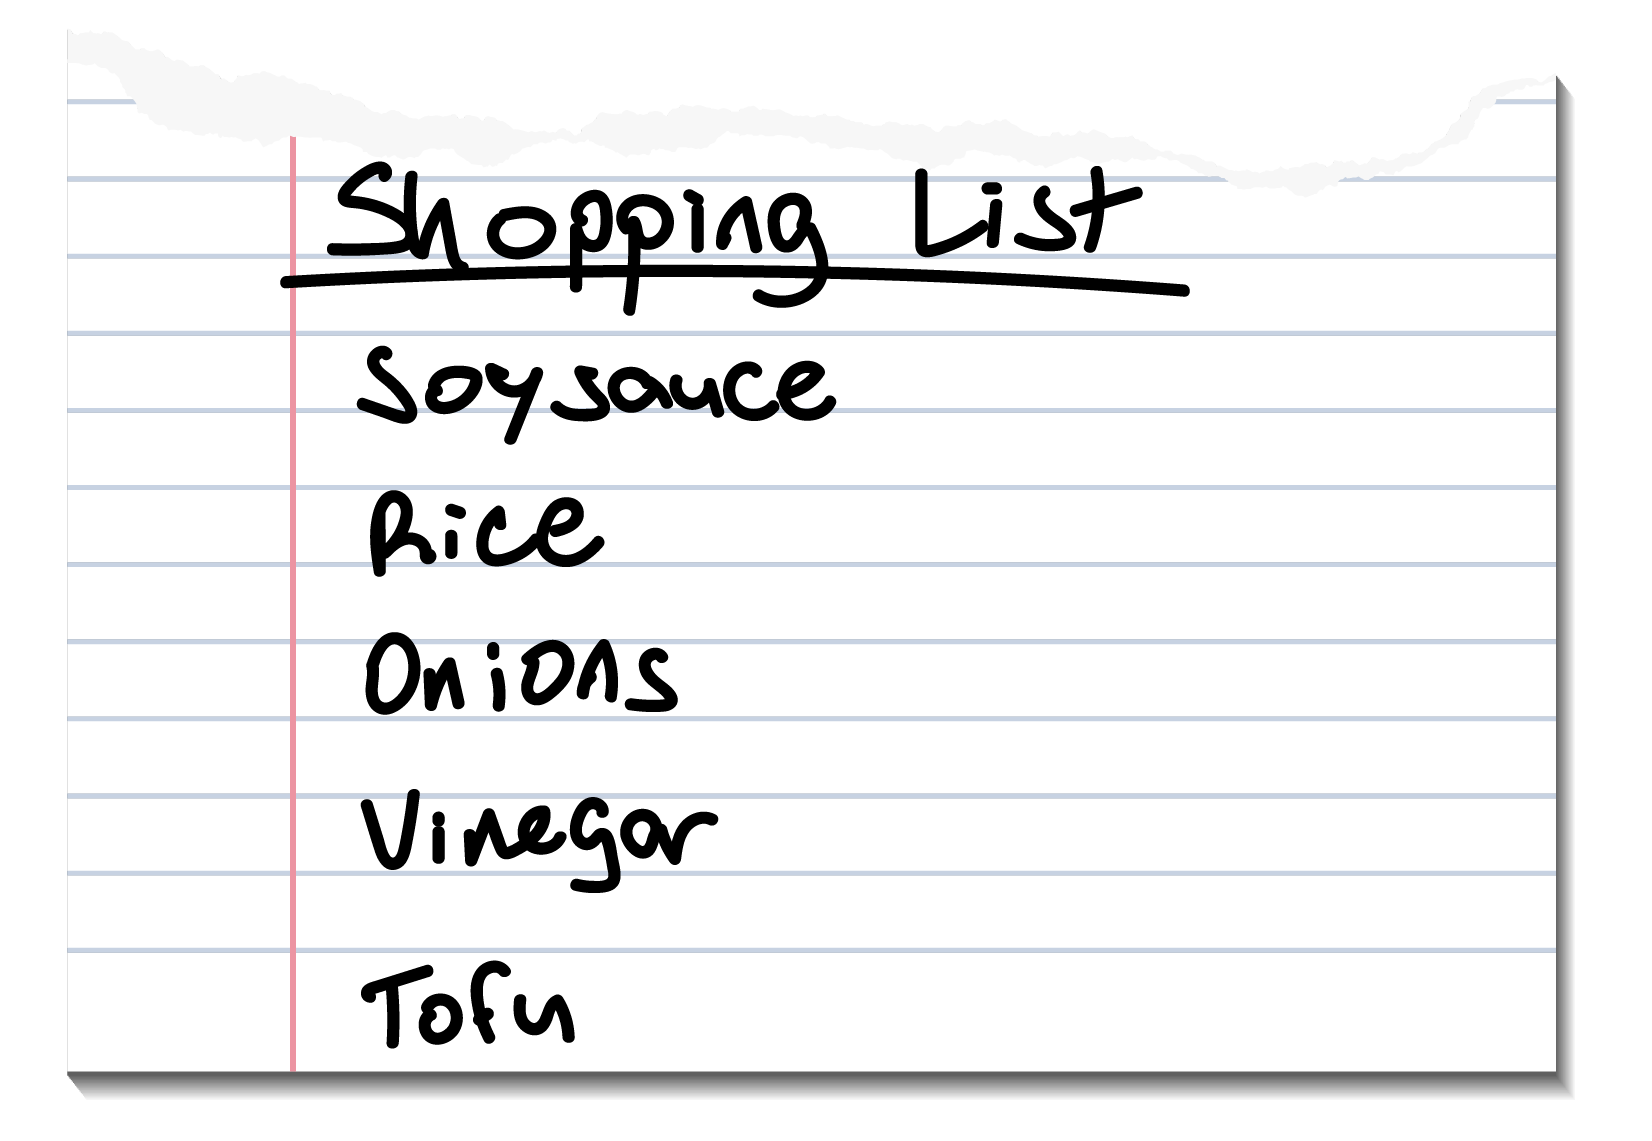 Shopping List
Soysauce
Rice
Onions
Vinegar
Tofu